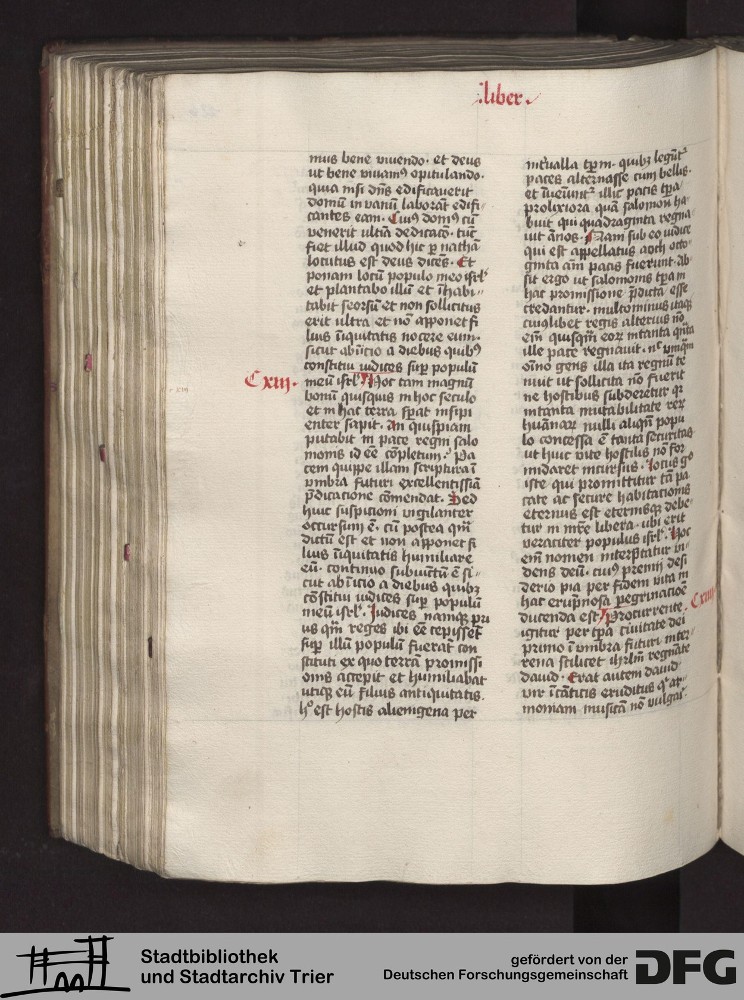 liber.
mus bene viuendo. et deus
ut bene viuamꝰ opitulando.
quia nisi dn̄s edificauerit
domū in vanū laborāt edifi-
cantes eam. Cuiꝰ domꝰ cū
venerit ultīa dedicacō. tūc
fiet illud quod hic ꝑ nathā
locutus est deus dicēs. Et
ponam locū populo meo isrl̄
et plantabo illū et īhabi-
tabit seorsū et non sollicitus
erit ultra et nō apponet fi
lius īiquitatis nocere eum.
sicut ab īicio a diebus quibꝰ
constitui iudices suꝑ populū
Cxiij.
meū isrl̄. Hoc tam magnū
bonū quisquis in hoc seculo
et in hac terra sꝑat insipi
enter sapit. An quispiam
putabit in pace regni salo
monis id eē cōpletum. Pa
cem quippe illam scriptura ī
vmbra futuri excellentissīa
p̄dicatione cōmendat. Sed
huic suspicioni vigilanter
occursum ē. cū postea qm̄
dictū est et non apponet fi
lius īiquitatis humiliare
eū. continuo subiūctū ē si-
cut ab īicio a diebus quibꝫ
cōstitui iudices suꝑ populū
meū isrl̄. Iudices namqꝫ pri
us qm̄ reges ibi eē cepissēt
suꝑ illū populū fuerāt con
stituti ex quo terrā promissi
onis accepit et humiliabat
utiqꝫ eū filius antiquitatis.
hͦ est hostis alienigena per
int̄ualla tꝑm. quibꝫ legūt᷑
paces alternasse cum bellis.
et īueniūt᷑ illic pacis tꝑa
prolixiora quā salomon ha
buit qui quadraginta regna
uit ānos. Nam sub eo iudice
qui est appellatus aoth octo-
ginta āni pacis fuerunt. Ab
sit ergo ut salomonis tꝑa in
hac promissione p̄dicta esse
credantur. multominus itaqꝫ
cuiuslibet regis alterius nō
em̄ quisqm̄ eorꝫ in tanta qn̄ta
ille pace regnauit. nᶜ vnqm̄
oīno gens illa ita regnū te
nuit ut sollicita nō fuerit
ne hostibus subderetur qꝛ
in tanta mutabilitate rerꝫ
hūanarꝫ nulli aliqn̄ popu
lo concessa ē tanta securitas
ut huic vite hostiles nō for
midaret incursus. Locus gͦ
iste qui promittitur tā pa
cate ac secure habitacionis
eternus est eternisqꝫ debe-
tur in mr̄e libera. ubi erit
veraciter populus isrl̄. Hoc
em̄ nomen interp̄tatur in-
dens deū. cuiꝰ premij desi
derio pia per fidem vita in
hac erūpnosa ꝑegrinacioē
ducenda est. Procurrente
Cxiiij
igitur per tꝑa ciuitate dei
primo ī vmbra futuri inter-
rena scilicet ihrl̄m regnāte
dauid. Erat autem dauid
vir ī cāticis eruditus qͥ ar-
moniam musicā nō vulgai
Stadtbibliothek
und Stadtarchiv Trier
gefördert von der
Deutschen Forschungsgemeinschaft
DFG